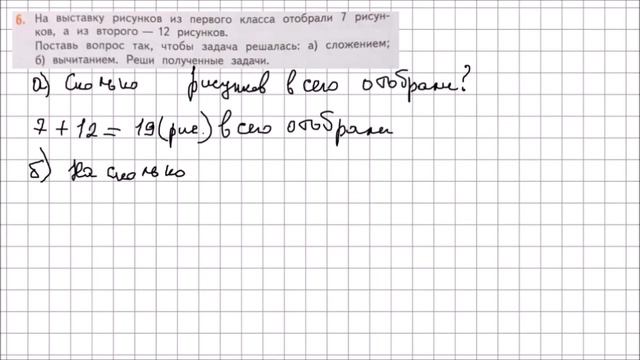 6. На выставку рисунков из первого класса отобрали 7 рисун-
ков, а из второго — 12 рисунков.
Поставь вопрос так, чтобы задача решалась: а) сложением;
б) вычитанием. Реши полученные задачи.
а) Сколько рисунков всего отобрали?
7 + 12 = 19 (рис.) всего отобрали
б) На сколько